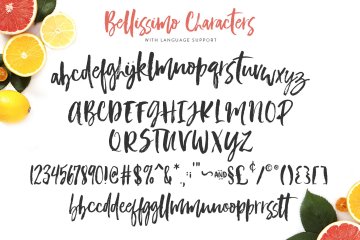 Bellissimo Characters
WITH LANGUAGE SUPPORT
abcdefghijklmnopqrstuvwxyz
ABCDEFGHIJKLMNOP
QRSTUVWXYZ
1234567890!@#$%^&*.,:;'"~AND§£¢/©®(){}[]
bbccddeefgallmmnnoopprrsstt